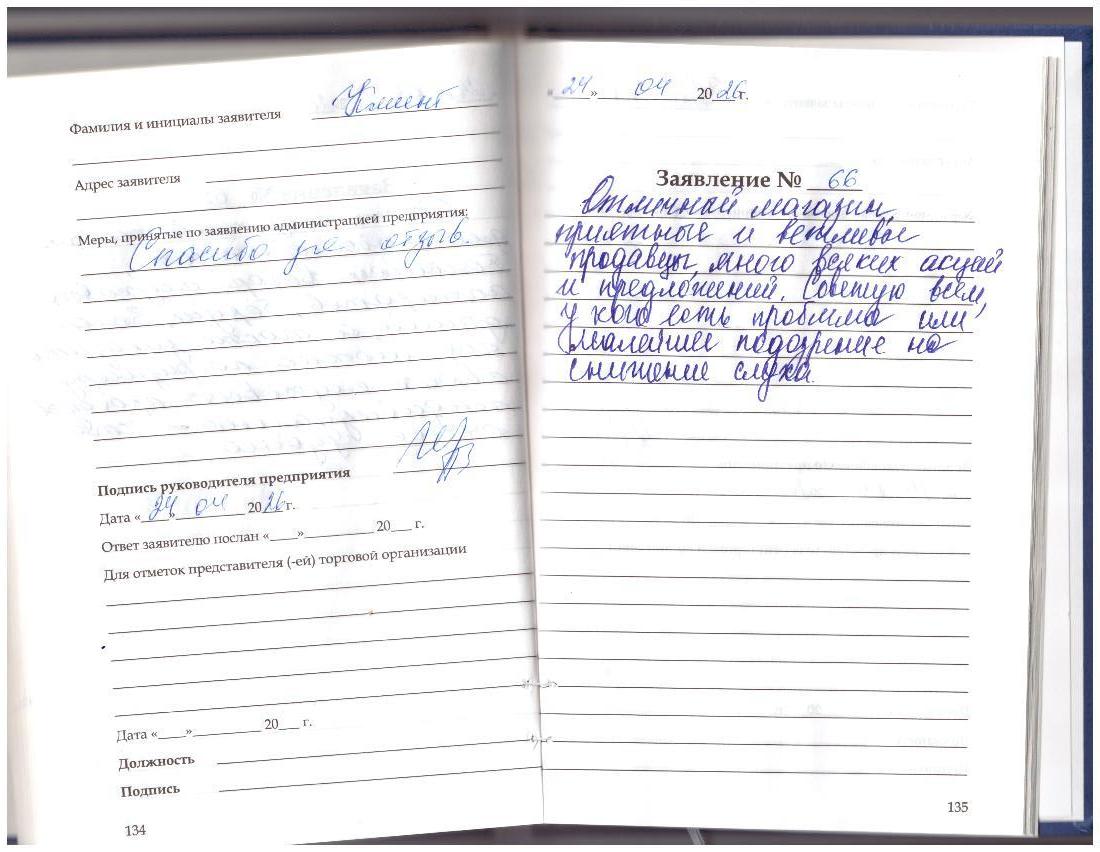 Фамилия и инициалы заявителя Клиент
Адрес заявителя
Меры, принятые по заявлению администрацией предприятия:
Спасибо за отзыв.
Подпись руководителя предприятия
Дата «24» 04 2026г.
Ответ заявителю послан «____»__________ 20___ г.
Для отметок представителя (-ей) торговой организации
Дата «____»__________ 20___ г.
Должность
Подпись
134
«24» 04 2026г.
Заявление № 66
Отличный магазин,
приятные и вежливые
продавцы, много всяких акций
и предложений. Советую всем,
у кого есть проблема или
малейшее подозрение на
снижение слуха.
135